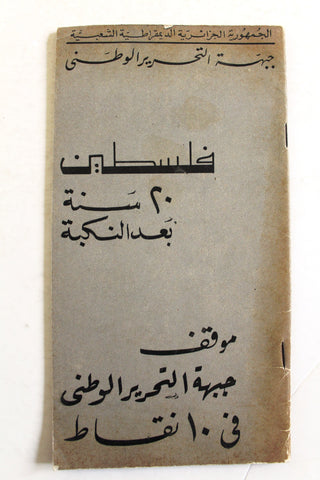 الجمهورية الجزائرية الديمقراطية الشعبية
جبهة التحرير الوطني
فلسطين
٢٠ سنة
بعد النكبة
موقف
جبهة التحرير الوطني
في ١٠ نقاط